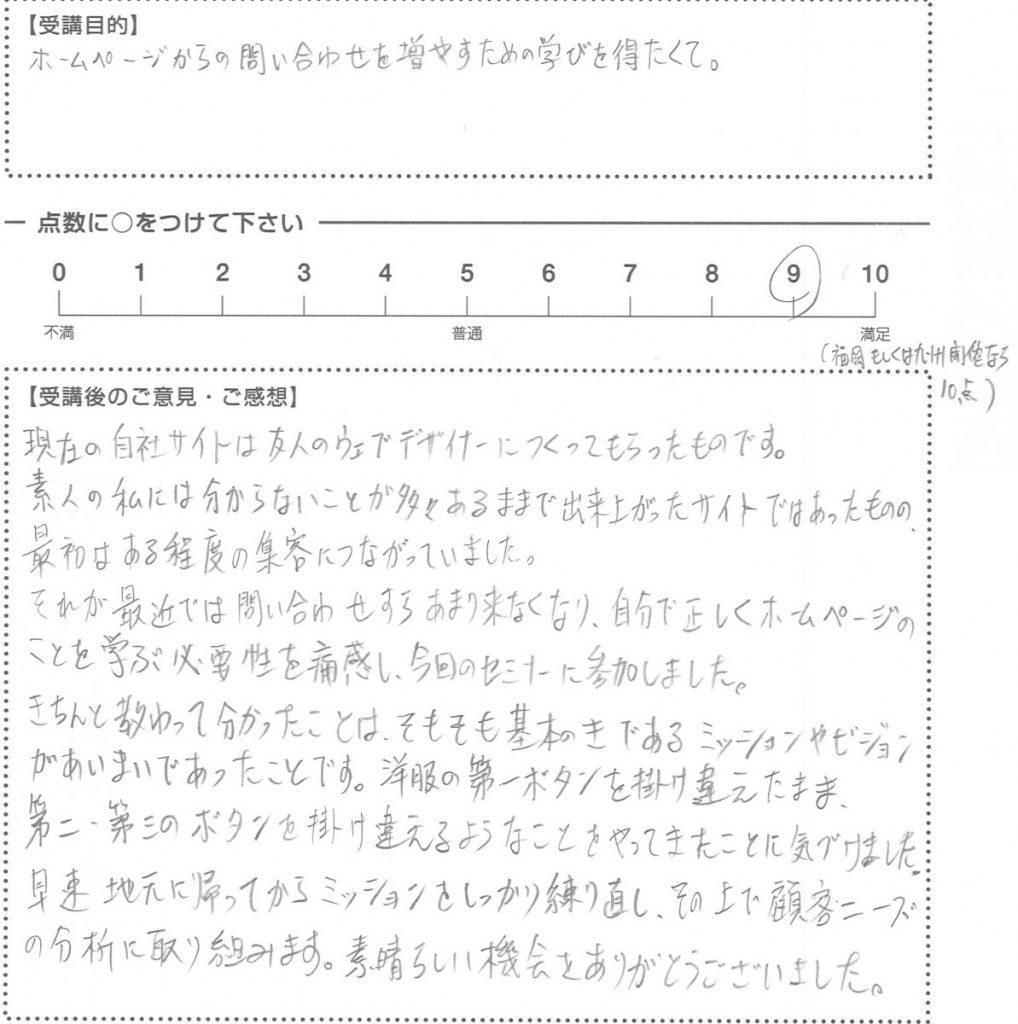 【受講目的】
ホームページからの問い合わせを増やすための学びを得たくて。
点数に○をつけて下さい
0 1 2 3 4 5 6 7 8 9 10
不満 普通 満足
(福岡もしくは九州開催なら
10点)
【受講後のご意見・ご感想】
現在の自社サイトは友人のウェブデザイナーにつくってもらったものです。
素人の私には分からないことが多々あるままで出来上がったサイトではあったものの、
最初はある程度の集客につながっていました。
それが最近では問い合わせすらあまり来なくなり、自分で正しくホームページの
ことを学ぶ必要性を痛感し、今回のセミナーに参加しました。
きちんと教わって分かったことは、そもそも基本のきであるミッションやビジョン
があいまいであったことです。洋服の第一ボタンを掛け違えたまま、
第二・第三のボタンを掛け違えるようなことをやってきたことに気づけました。
早速地元に帰ってからミッションをしっかり練り直し、その上で顧客ニーズ
の分析に取り組みます。素晴らしい機会をありがとうございました。